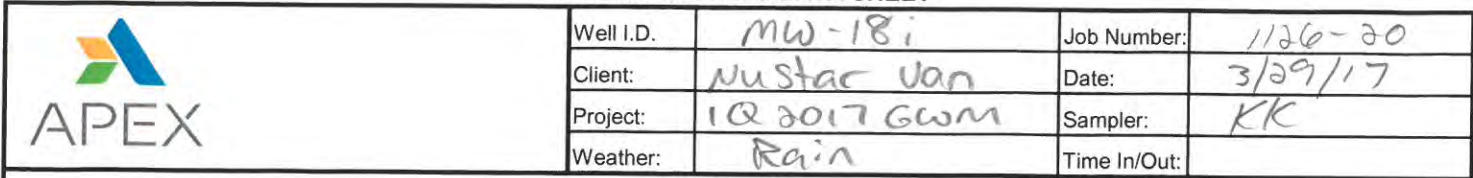 Well I.D. MW-18i Job Number: 1126-20
Client: NuStar Van Date: 3/29/17
Project: 1Q 2017 GWM Sampler: KK
Weather: Rain Time In/Out:
APEX